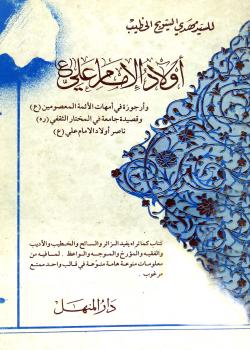 للسيد مهدي السويج الخطيب
أولاد الإمام علي (ع)
وأرجوزة في أمهات الأئمة المعصومين (ع)
وقصيدة جامعة في المختار الثقفي (ره)
ناصر أولاد الإمام علي (ع)
كتاب كما تراه يفيد الزائر والسائح والخطيب والأديب
والفقيه والمؤرخ والموجه والواعظ . لما فيه من
معلومات منوعة هامة منوّعة في قالب واحد ممتع
مرغوب .
دار المنهل